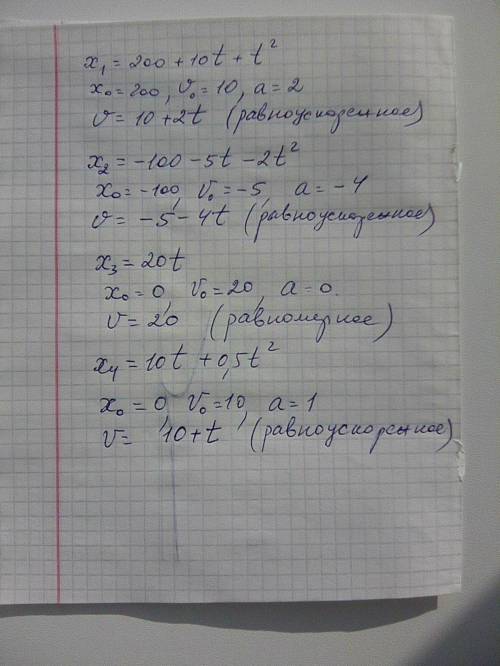 x₁ = 200 + 10t + t²
x₀ = 200, v₀ = 10, a = 2
v = 10 + 2t (равноускоренное)
x₂ = -100 - 5t - 2t²
x₀ = -100, v₀ = -5, a = -4
v = -5 - 4t (равноускоренное)
x₃ = 20t
x₀ = 0, v₀ = 20, a = 0.
v = 20 (равномерное)
x₄ = 10t + 0,5t²
x₀ = 0, v₀ = 10, a = 1
v = 10 + t (равноускоренное)